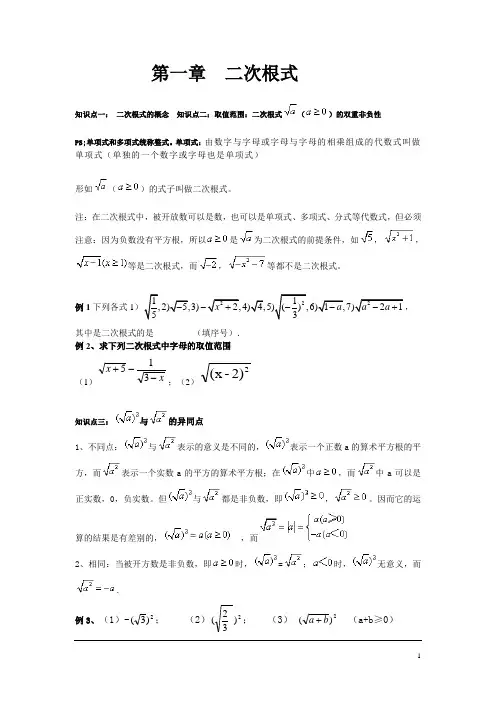 第一章 二次根式
知识点一： 二次根式的概念 知识点二：取值范围：二次根式√a（a≥0）的双重非负性
PS;单项式和多项式统称整式。单项式：由数字与字母或字母与字母的相乘组成的代数式叫做
单项式（单独的一个数字或字母也是单项式）
形如√a（a≥0）的式子叫做二次根式。
注：在二次根式中，被开放数可以是数，也可以是单项式、多项式、分式等代数式，但必须
注意：因为负数没有平方根，所以a≥0是√a为二次根式的前提条件，如√5，√(x²+1)，
√(x-1)(x≥1)等是二次根式，而√(-2)，√(-x²-7)等都不是二次根式。
例1下列各式1）√(1/5),2)√-5,3)-√(x²+2),4)√4,5)√((-1/3)²),6)√(1-a),7)√(a²-2a+1)，
其中是二次根式的是 （填序号）.
例2、求下列二次根式中字母的取值范围
（1）√(x+5)-1/√(3-x)；（2）√((x-2)²)
知识点三：(√a)²与√(a²)的异同点
1、不同点：(√a)²与√(a²)表示的意义是不同的，(√a)²表示一个正数a的算术平方根的平
方，而√(a²)表示一个实数a的平方的算术平方根；在(√a)²中a≥0，而√(a²)中a可以是
正实数，0，负实数。但(√a)²与√(a²)都是非负数，即(√a)²≥0，√(a²)≥0。因而它的运
算的结果是有差别的，(√a)²=a(a≥0) ，而√(a²)=|a|={a(a≥0) -a(a<0)
2、相同：当被开方数是非负数，即a≥0时，(√a)²=√(a²)；a<0时，(√a)²无意义，而
√(a²)=-a.
例3、（1）-(√3)²； （2）(√(2/3))²； （3） (√(a+b))² （a+b≥0）
1